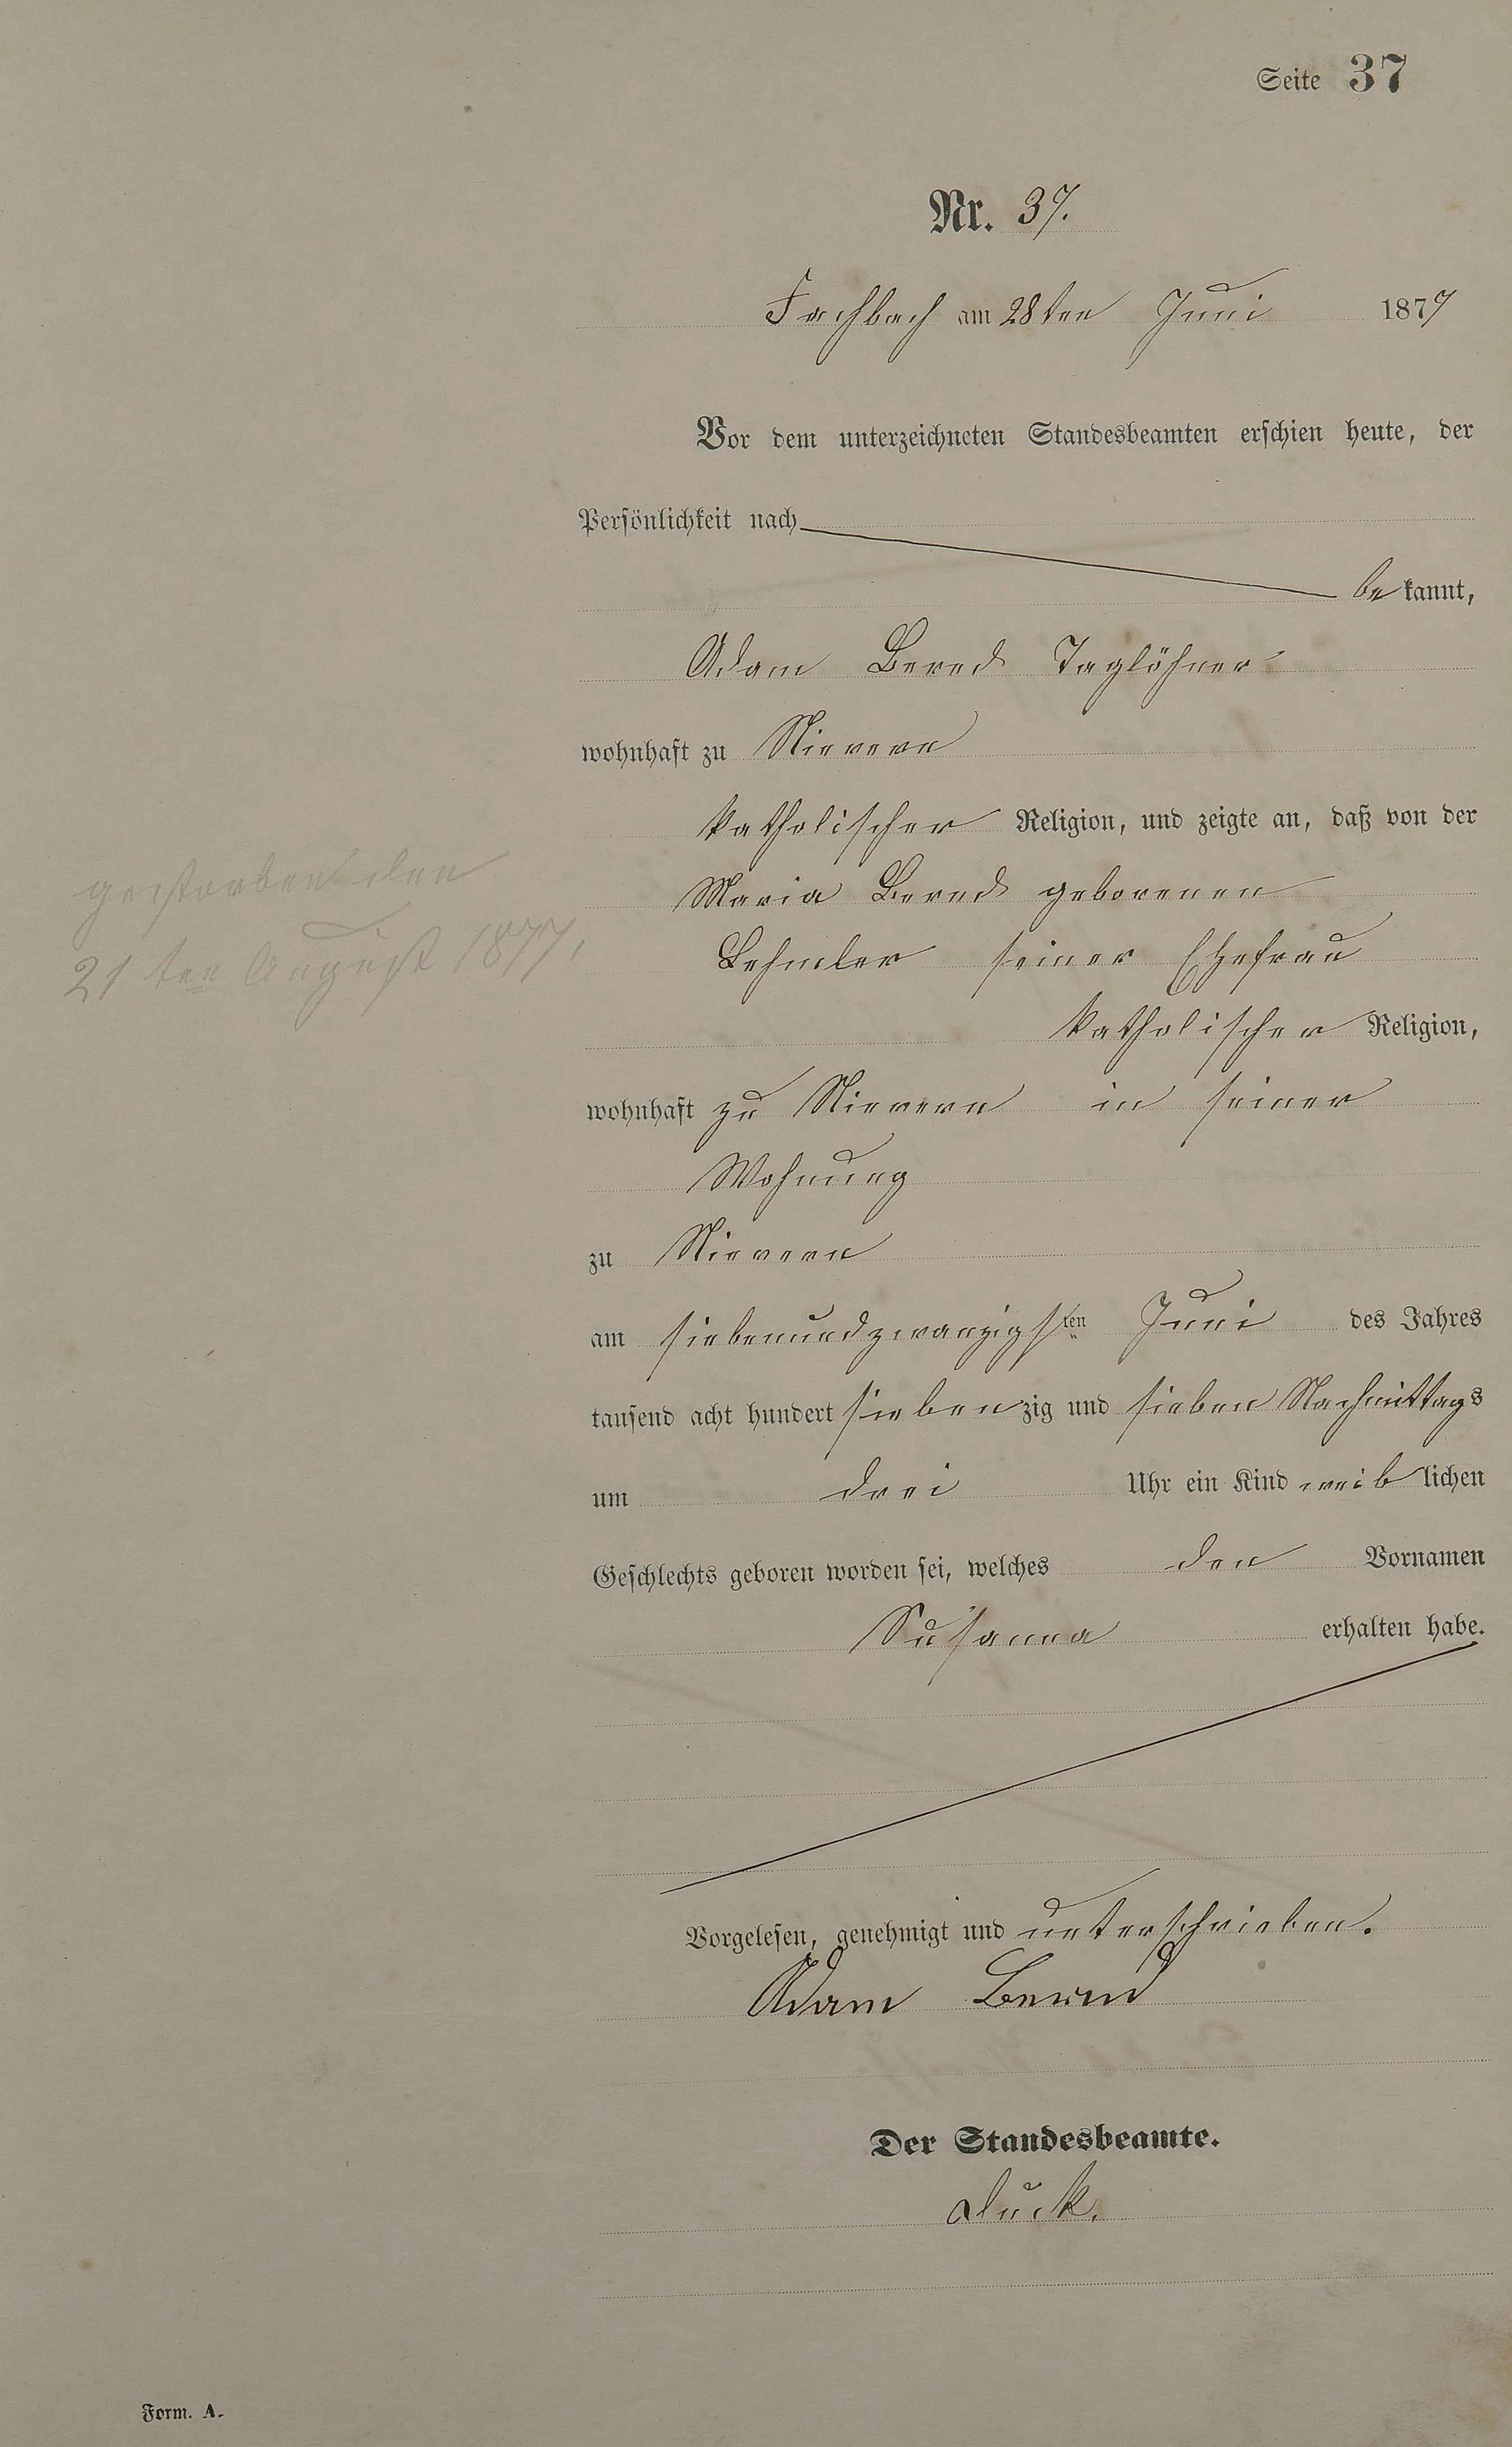 Seite 37
Nr. 37.
Fachbach am 28ten Juni 1877
Vor dem unterzeichneten Standesbeamten erschien heute, der
Persönlichkeit nach
bekannt,
Adam Bernd Taglöhner
wohnhaft zu Nievern
katholischer Religion, und zeigte an, daß von der
Maria Bernd geborenen
Lehmler seiner Ehefrau
katholischer Religion,
wohnhaft zu Nievern in seiner
Wohnung
zu Nievern
am siebenundzwanzigsten Juni des Jahres
tausend acht hundert siebenzig und sieben Nachmittags
um drei Uhr ein Kind weiblichen
Geschlechts geboren worden sei, welches den Vornamen
Susanna erhalten habe.
Vorgelesen, genehmigt und unterschrieben.
Adam Bernd
Der Standesbeamte.
Duck.
gestorben den
21ten August 1877,
Form. A.